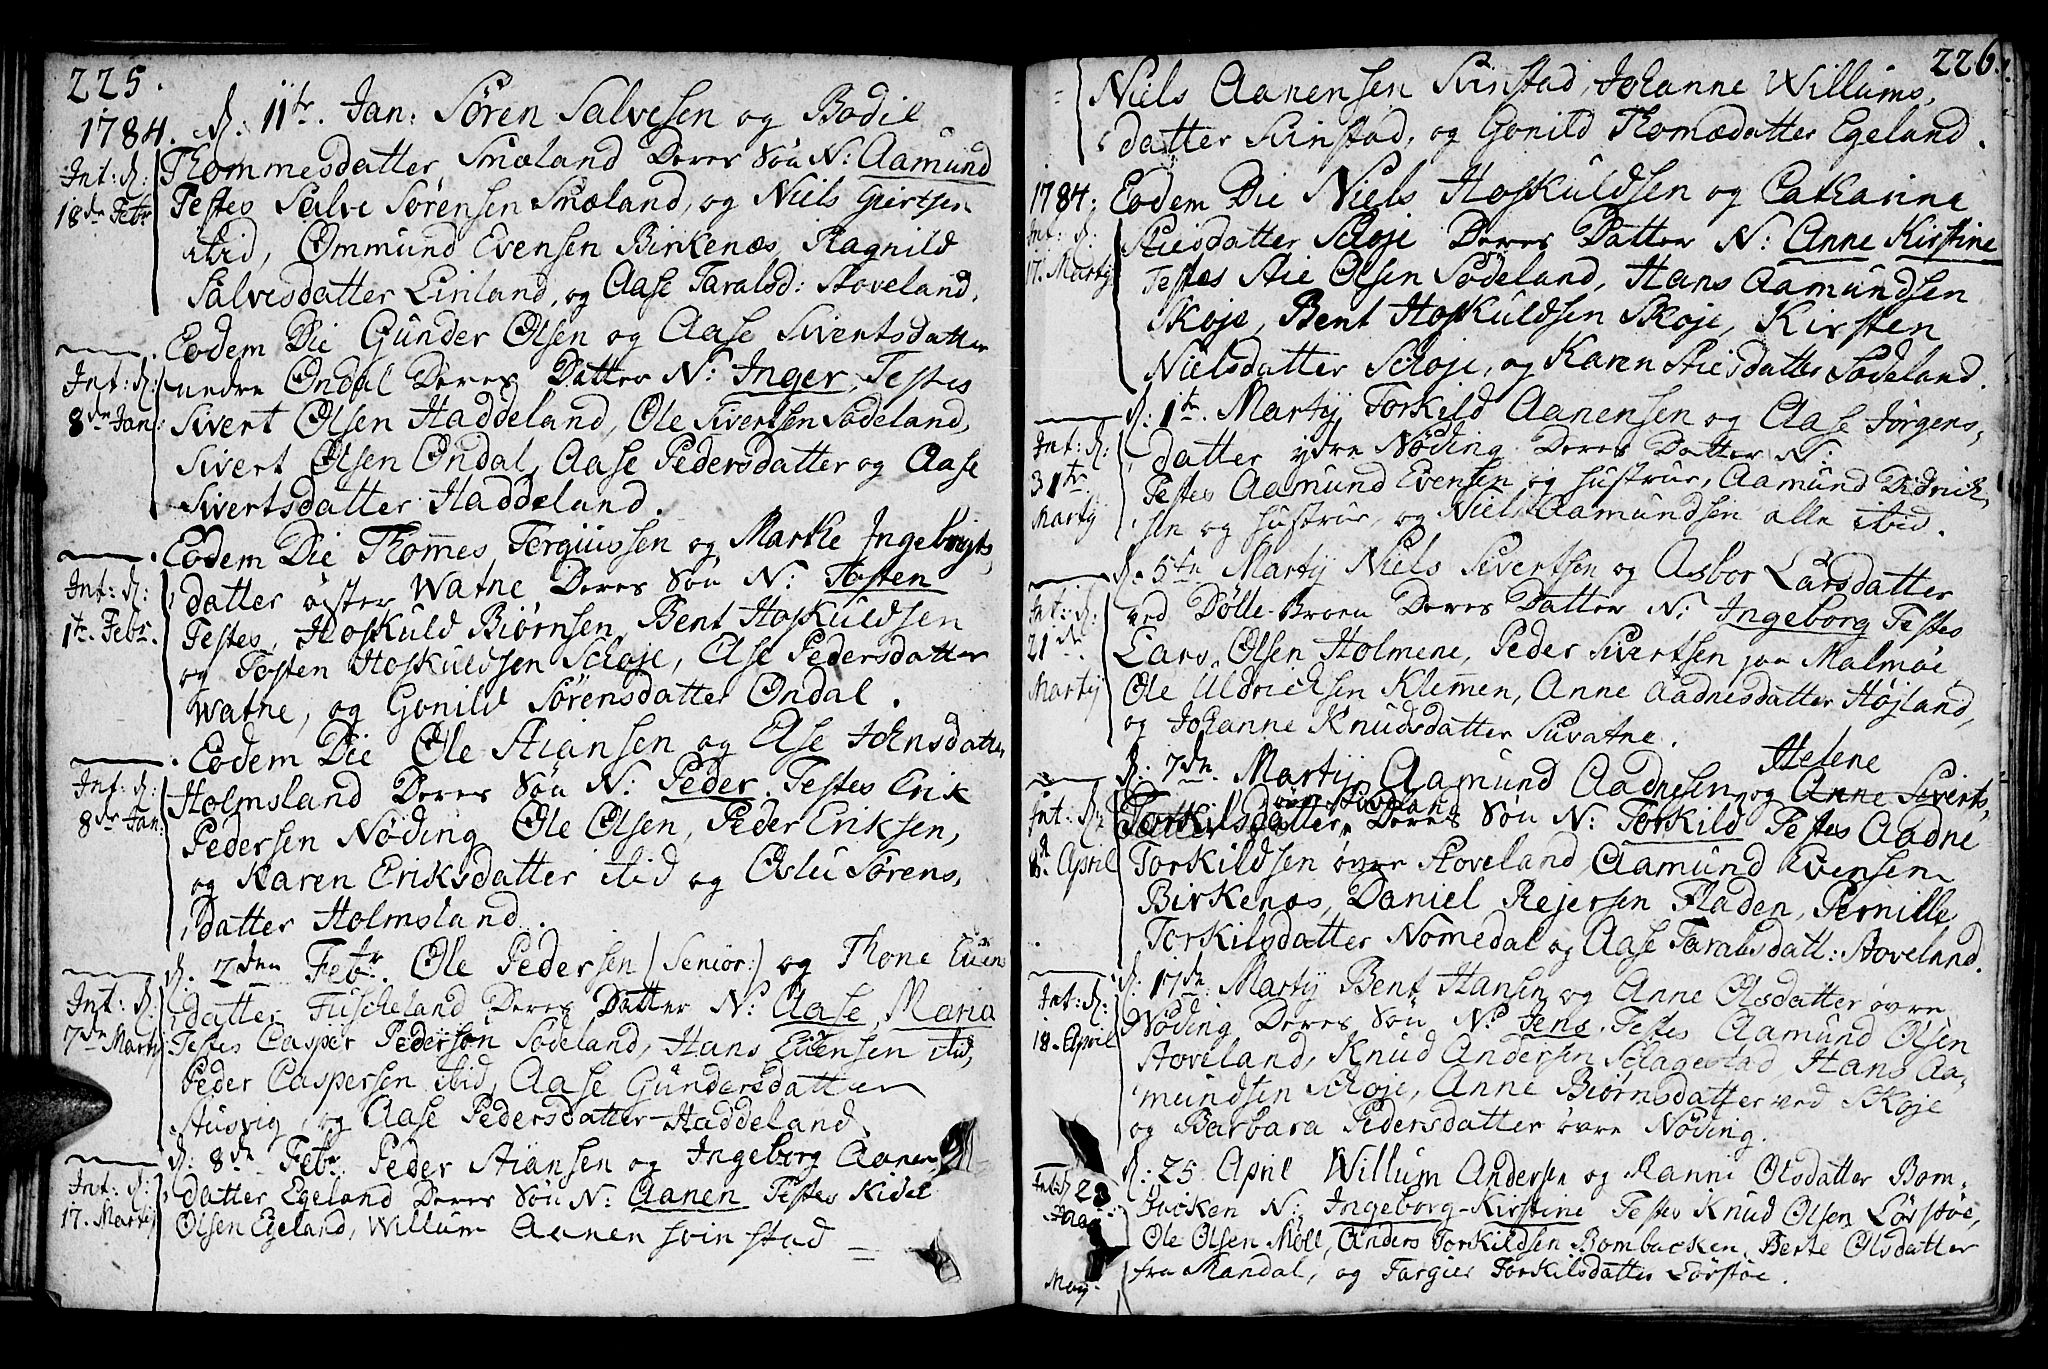 225.
1784. d: 11te. Jan: Søren Salvesen og Bodil
Int: d: Thommesdatter Snæland Deres Søn N: Aamund
18de Febr Testes Salve Sørensen Snæland, og Niels Giertsen
ibid, Ommund Evensen Birkenæs, Ragnild
Salvesdatter Linland, og Aase Taralsd: Stoveland.
Eodem Die Gunder Olsen og Aase Sivertsdatter
Int: d: nedre Ondal Deres Datter N: Inger, Testes
8de Jan: Sivert Olsen Haddeland, Ole Sivertsen Sødeland,
Sivert Olsen Ondal, Aase Pedersdatter og Aase
Sivertsdatter Haddeland.
Eodem Die Thom̄es Tergiussen og Marthe Ingebrigts
Int: d: datter øister Watne Deres Søn N: Tosten
1te. Febr. Testes, Hoskuld Biørnsen, Bent Hoskuldsen
og Tosten Hoskuldsen Schoje, Else Pedersdatter
Watne, og Gonild Sørensdatter Ondal.
Eodem Die Ole Stiansen og Else Johnsdatter
Int: d: Holmsland Deres Søn N: Peder. Testes Erik
8de Jan: Pedersen Nøding Ole Olsen, Peder Eriksen,
og Karen Eriksdatter ibid og Oslu Sørens,
datter Holmsland.
d. 7den Febr. Ole Pedersen (Senior:) og Thone Even
Int: d: datter Tuscheland Deres Datter N: Aase Maria
7de Martij Testes Casper Pedersøn Sødeland, Hans Evensen ibid,
Peder Caspersen ibid, Aase Gundersdatter
Stusvig, og Aase Pedersdatter Haddeland.
d. 8de Febr. Peder Stiansen og Ingeborg Aanen
Int: d: datter Egeland Deres Søn N: Aanen Testes Kidel
17. Martij Olsen Egeland, Willum Aanensen Svinstad =
226.
= Niels Aanensen Svinstad, Johanne Willums,
datter Svinstad, og Gonild Thomædatter Egeland.
1784. Eodem Die Niels Hoskuldsen og Catharina
Int: d: Stiesdatter Schoje Deres Datter N: Anne Kirstine
17. Martij Testes Stie Olsen Sødeland, Hans Aamundsen
Skoje, Bent Hoskuldsen Skoje, Kirsten
Nielsdatter Schoje, og Karen Stiesdatter Sødeland.
d: 1te. Martij Torkild Aanensen og Aase Jørgens,
Int: d: datter ydre Nøding Deres Datter N:
31te Testes Aamund Evensen og hustrue, Aamund Didrich,
Martij sen og hustrue, og Niels Aamundsen alle ibid.
d. 5te Martij Niels Sivertsen og Asbor Larsdatter
Int: d: ved Dølle-Broen Deres Datter N: Ingeborg Testes
21de Lars Olsen Holmene, Peder Sivertsen paa Malmøe,
Martij Ole Uldrichsen Klem̄en, Anne Aadnesdatter Højland,
og Johanne Knudsdatter Suvatne.
Helene
d: 7de. Martij Aamund Aadnesen og Anne Siverts,
øvre Stoveland
Int: d: Torkilsdatter, Deres Søn N: Torkild Testes Aadne
April Torkildsen øvre Stoveland Aamund Evensen
Birkenæs, Daniel Rejersen Fladen, Pernille
Torkilsdatter Nomedal og Aase Taraldsdatt: Stoveland.
d. 17de Martij Bent Hansen og Anne Olsdatter øvre
Int: d: Nøding Deres Søn N: Jens. Testes Aamund Olsen
18. April Stoveland, Knud Andersen Schagestad, Hans Aa-
mundsen Schoje, Anne Biørnsdatter ved Skoje
og Barbara Pedersdatter øvre Nøding.
d: 25 April Willum Andersen og Ranni Olsdatter Bom,
Int: d 23 bucken N: Ingeborg-Kirstine Testes Knud Olsen Lørstøe,
Ole Olsen Möll, Anders Torkildsen Bombacken, Berte Olsdatter
May. fra Mandal, og Targier Torkilsdatter Lørstøe.